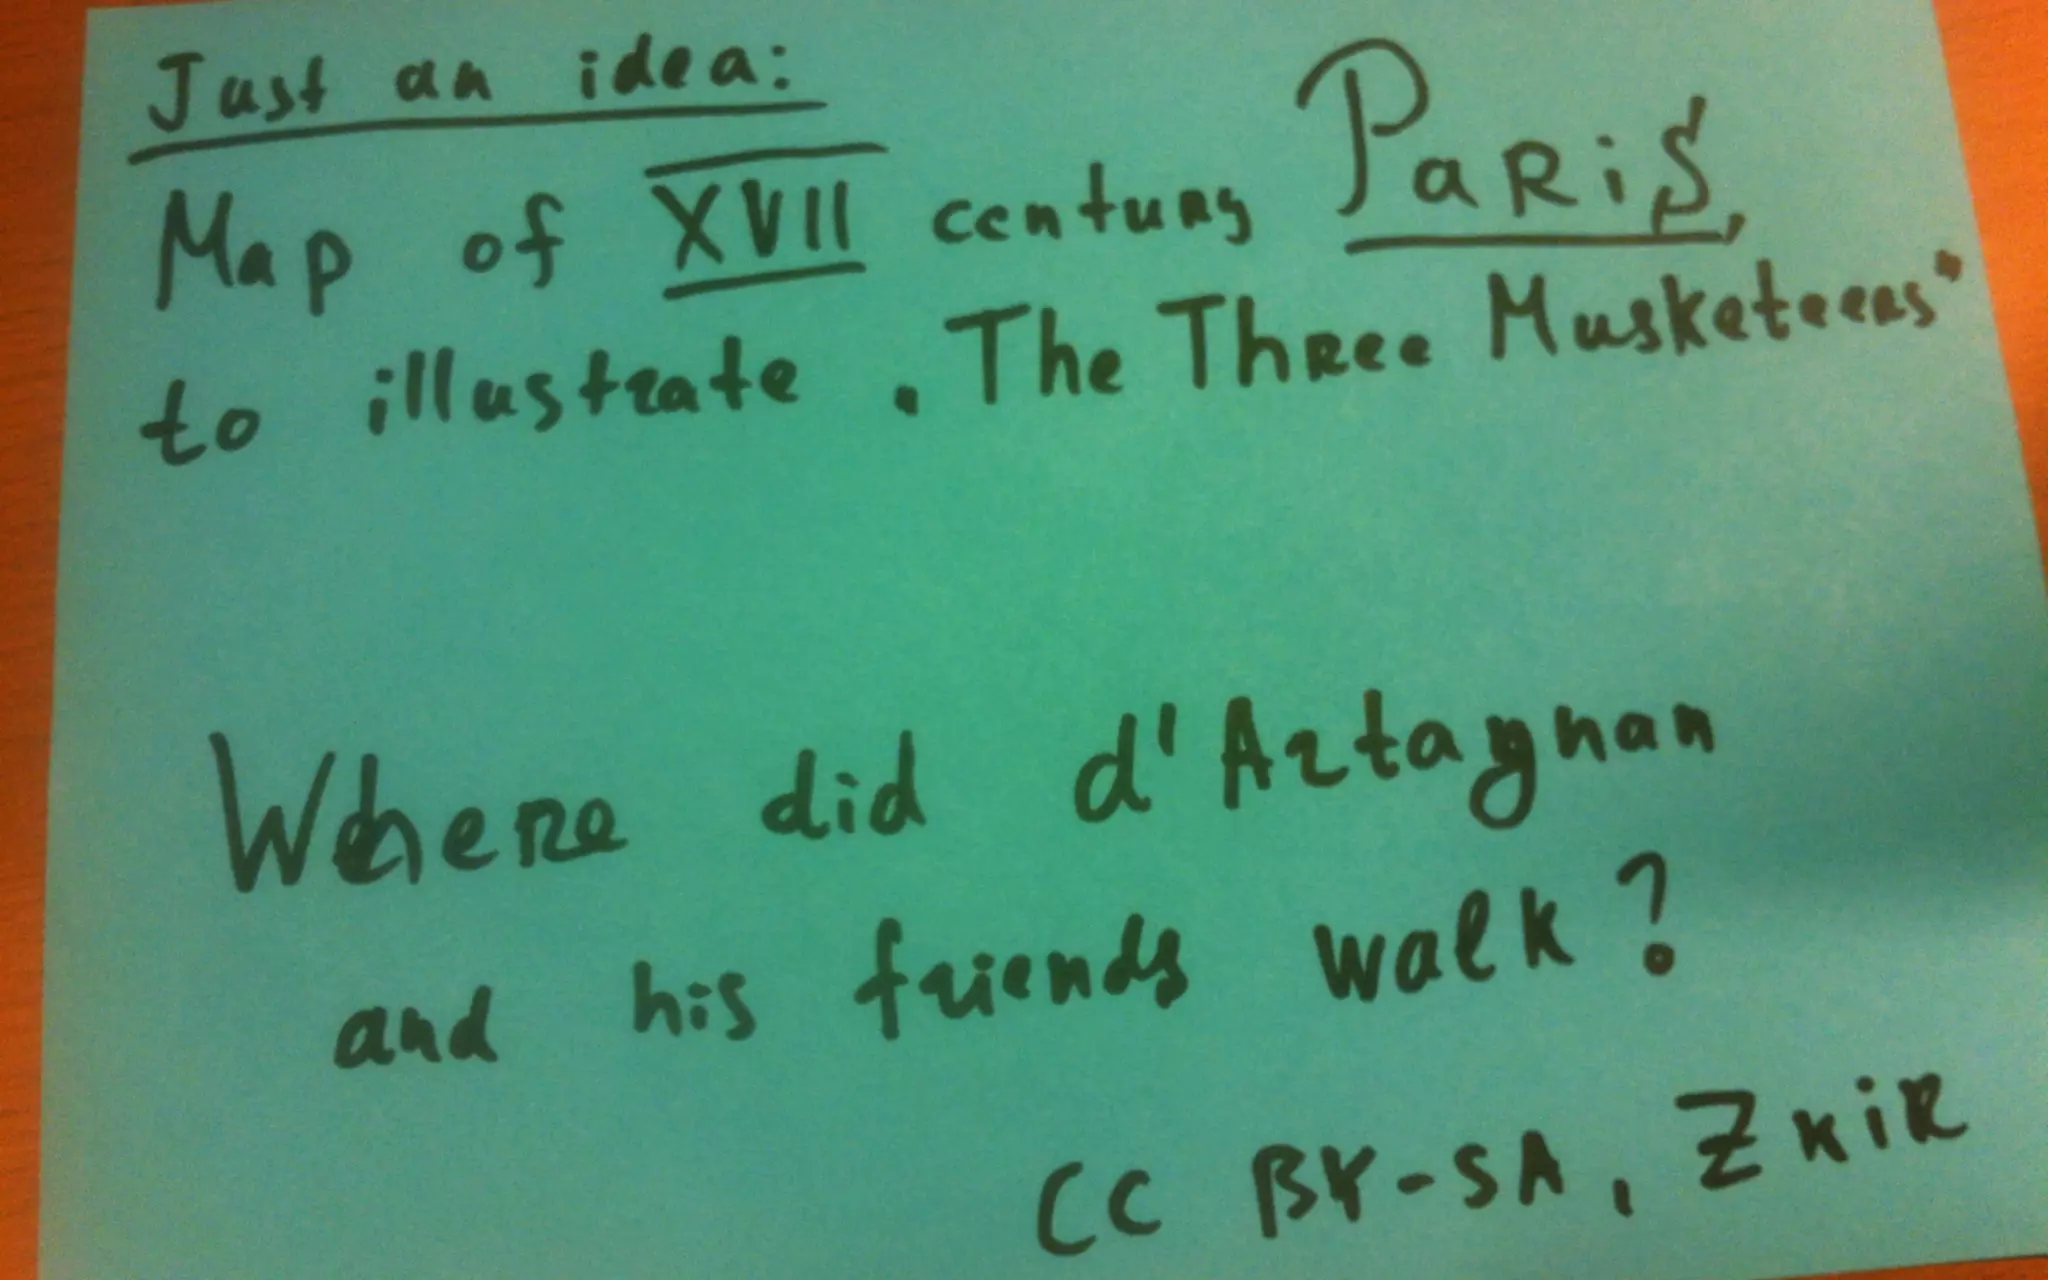 Just an idea:
Map of XVII century Paris,
to illustrate . The Three Musketeers"
Where did d'Artagnan
and his friends walk?
CC BY-SA, Zkir